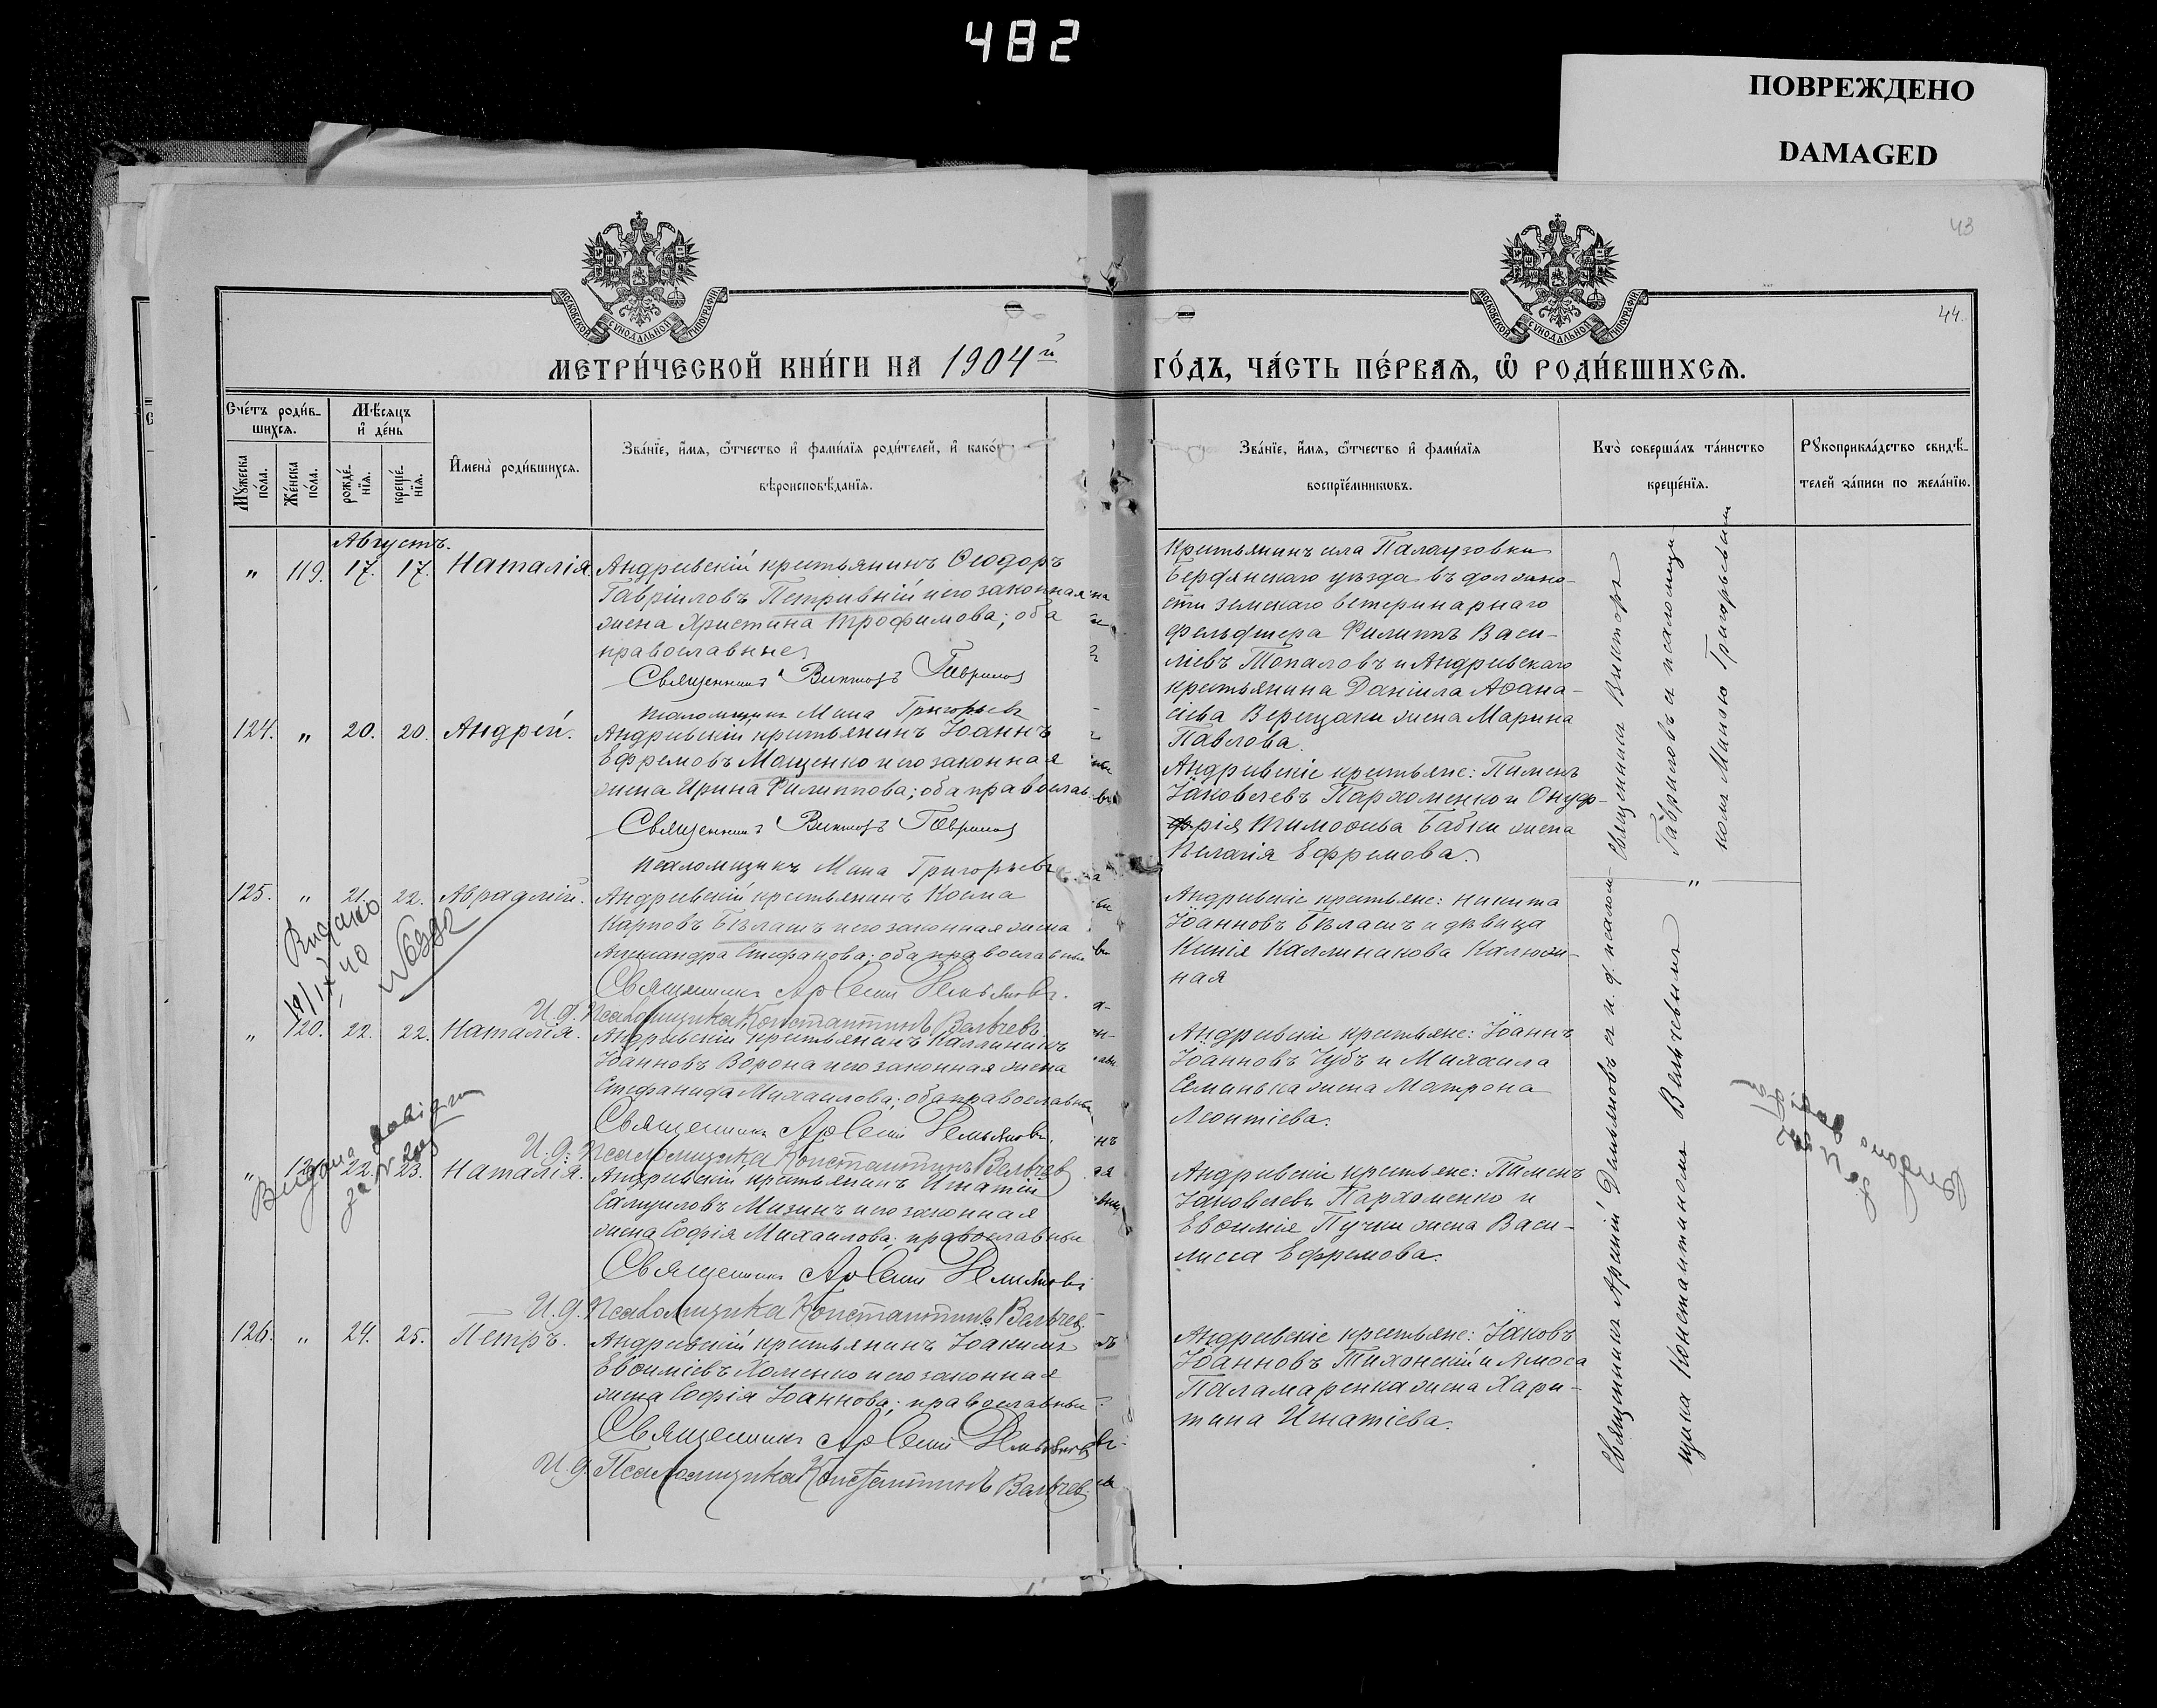 482
ПОВРЕЖДЕНО
DAMAGED
43
44.
МОСКОВСКОЙ СѴНОДАЛЬНОЙ ТИПОГРАФІИ
МОСКОВСКОЙ СѴНОДАЛЬНОЙ ТИПОГРАФІИ
МЕТРИ́ЧЕСКОЙ КНИ́ГИ НА 1904й ГО́ДЪ, ЧА́СТЬ ПЕ́РВАѦ, Ѡ҆ РОДИ́ВШИХСѦ.
Сче́тъ роди́в-
шихсѧ.
Мѣ́сѧцъ
и҆ де́нь
Мꙋ́жеска
по́ла.
Же́нска
по́ла.
рожде́-
нїѧ.
креще́-
нїѧ.
И҆мена̀ роди́вшихсѧ.
Зва́нїе, и҆́мѧ, ѻ҆́тчество и҆ фами́лїѧ роди́телей, и҆ како́
вѣроисповѣ́данїѧ.
Зва́нїе, и҆́мѧ, ѻ҆́тчество и҆ фами́лїѧ
воспрїе́мникѡвъ.
Кто̀ соверша́лъ та́инство
креще́нїѧ.
Рꙋкоприкла́дство свидѣ́-
телей за́писи по жела́нїю.
Августъ.
" 119. 17. 17. Наталія. Андреевскій крестьянинъ Ѳеодоръ
Гавріиловъ Петривній и его законная
жена Христина Трофимова; оба
православные
Священникъ Викторъ Гавриловъ
Псаломщикъ Мина Григорьевъ
Крестьянинъ села Палаузовки
Бердянскаго уѣзда въ должно-
сти земскаго ветеринарнаго
фельдшера Филиппъ Васи-
ліевъ Топаловъ и Андреевскаго
крестьянина Даніила Аѳана-
сіева Верещаки жена Марина
Павлова.
124. " 20. 20. Андрей. Андреевскій крестьянинъ Іоаннъ
Ефремовъ Мощенко и его законная
жена Ирина Филиппова; оба православ.
Священникъ Викторъ Гавриловъ
Псаломщикъ Мина Григорьевъ
Андреевскіе крестьяне: Пименъ
Іаковлевъ Пархоменко и Онуф-
рія Тимоѳеева Бабки жена
Пелагія Ефремова.
Священникъ Викторъ
Гавриловъ съ псаломщи-
комъ Миною Григорьевымъ
"
125. " 21. 22. Авраамій. Андреевскій крестьянинъ Косма
Карповъ Бѣлашъ и его законная жена
Александра Стефанова; оба православные
Священникъ Арсеній Демьяновъ.
И. д. Псаломщика Константинъ Вельчевъ
Андреевскіе крестьяне: Никита
Іоанновъ Бѣлашъ и дѣвица
Ксенія Каллиникова Калюж-
ная
19/IX 40
" 120. 22. 22. Наталія. Андреевскій крестьянинъ Каллиникъ
Іоанновъ Ворона и его законная жена
Стефанида Михаилова; оба православные
Священникъ Арсеній Демьяновъ.
И. д. Псаломщика Константинъ Вельчевъ
Андреевскіе крестьяне: Іоаннъ
Іоанновъ Чубъ и Михаила
Семенька жена Матрона
Леонтіева.
" 121. 22. 23. Наталія. Андреевскій крестьянинъ Игнатій
Самуиловъ Мизинъ и его законная
жена Софія Михаилова; православные
Священникъ Арсеній Демьяновъ
И. д. Псаломщика Константинъ Вельчевъ
Андреевскіе крестьяне: Пименъ
Іаковлевъ Пархоменко и
Евѳимія Пучки жена Васи-
лисса Ефремова.
126. " 24. 25. Петръ. Андреевскій крестьянинъ Іоакимъ
Евѳиміевъ Хоменко и его законная
жена Софія Іоаннова; православные
Священникъ Арсеній Демьяновъ
И. д. Псаломщика Константинъ Вельчевъ
Андреевскіе крестьяне: Іаковъ
Іоанновъ Тихонскій и Амоса
Паламаренка жена Хари-
тина Игнатіева.
Священникъ Арсеній Демьяновъ съ и. д. псалом-
щика Константиномъ Вельчевымъ